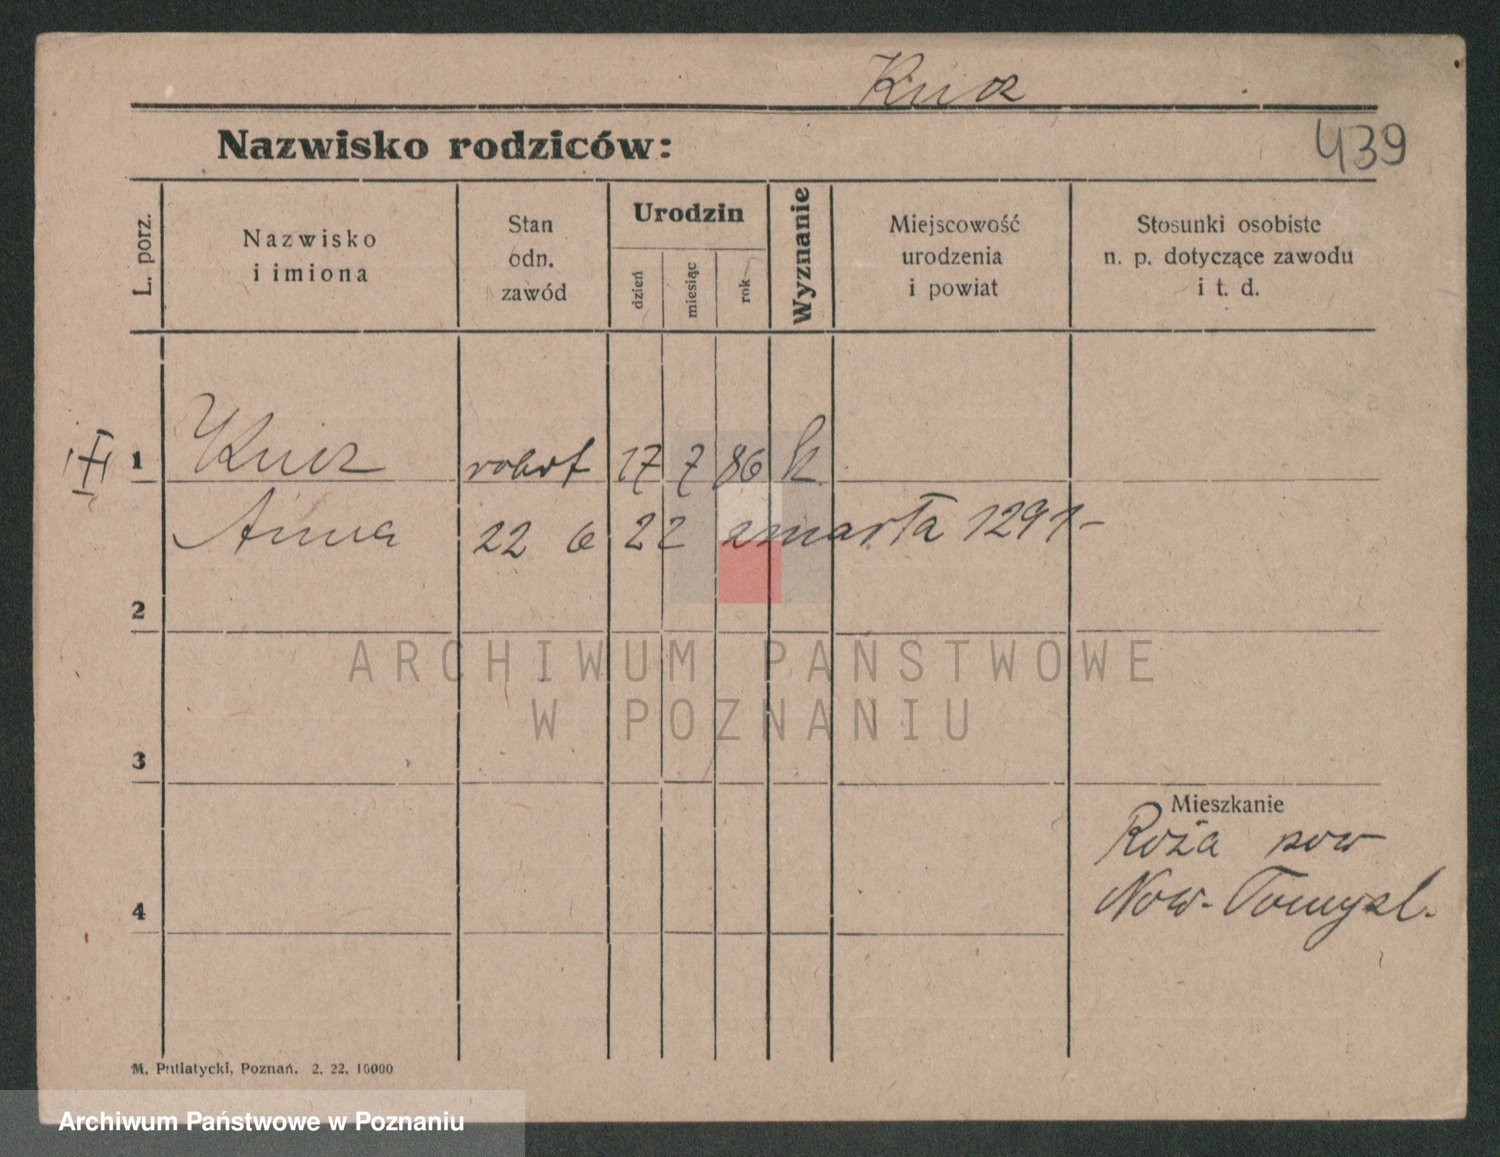 Kucz
Nazwisko rodziców:
439
L. porz.
Nazwisko
i imiona
Stan
odn.
zawód
Urodzin
dzień
miesiąc
rok
Wyznanie
Miejscowość
urodzenia
i powiat
Stosunki osobiste
n. p. dotyczące zawodu
i t. d.
1 Kucz robot 17 7 86 k
Anna 22 6 22 zmarła 1291-
2
ARCHIWUM PAŃSTWOWE
W POZNANIU
3
Mieszkanie
Róża pow
4 Now-Tomysl.
M. Putiatycki, Poznań. 2. 22. 10000
Archiwum Państwowe w Poznaniu